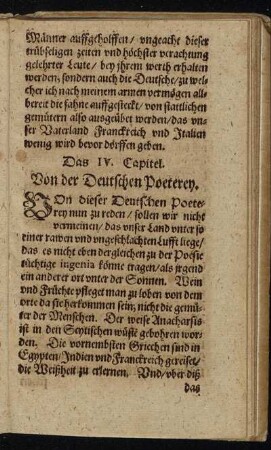 Männer auffgeholffen/ vngeacht dieser
trübseligen zeiten vnd höchster verachtung
gelehrter Leute/ bey jhrem werth erhalten
werden, sondern auch die Deutsche/ zu wel-
cher ich nach meinem armen vermögen all-
bereit die fahne auffgesteckt/ von stattlichen
gemütern also ausgeübet werden/ das vn-
ser Vaterland Franckreich vnd Italien
wenig wird bevor dörffen geben.
Das IV. Capitel.
Von der Deutschen Poeterey.
VOn dieser Deutschen Poete-
rey nun zu reden/ sollen wir nicht
vermeinen/ das vnser Land vnter so
einer rawen vnd vngeschlachten Lufft liege/
das es nicht eben dergleichen zu der Poesie
tüchtige ingenia könne tragen/ als jrgend
ein anderer ort vnter der Sonnen. Wein
vnd Früchte pfleget man zu loben von dem
orte da sie herkommen sein; nicht die gemü-
ter der Menschen. Der weise Anacharsis
ist in den Scytischen wüsten gebohren wor-
den. Die vornembsten Griechen sind in
Egypten/ Indien vnd Franckreich gereiset/
die Weißheit zu erlernen. Vnd/ vber diß
das